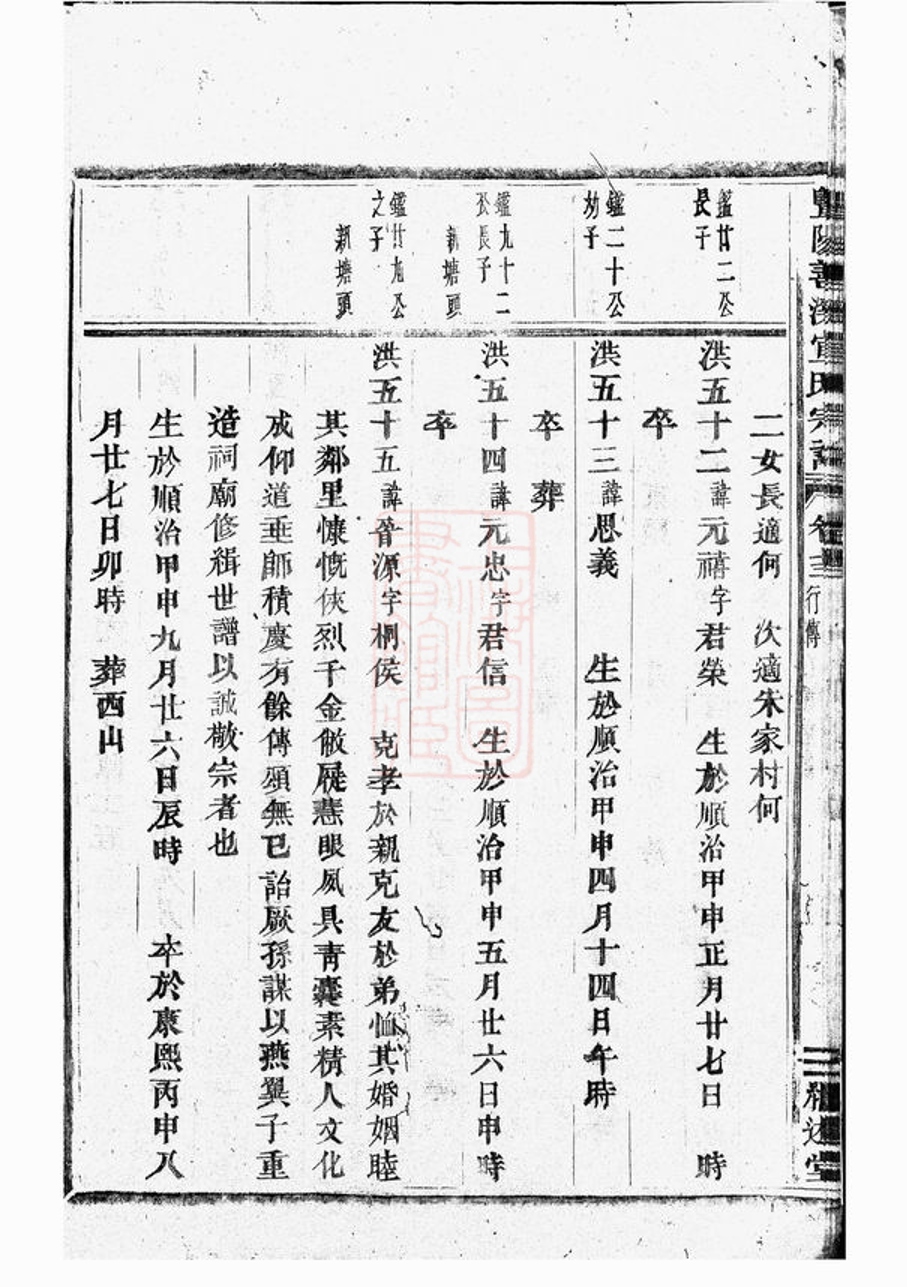 暨陽善溪宣氏宗譜 卷 行傳
繼述堂
二女長適何 次適朱家村何
鑑廿二公長子
洪五十二諱元禧字君榮 生於順治甲申正月廿七日 時
卒
鑑二十公幼子
洪五十三諱思義 生於順治甲申四月十四日午時
卒 葬
鑑九十二公長子 新塘頭
洪五十四諱元忠字君信 生於順治甲申五月廿六日申時
卒
鑑廿九公之子 新塘頭
洪五十五諱晉源字桐侯 克孝於親克友於弟恤其婚姻睦
其鄰里慷慨俠烈千金敝屣慧眼夙具青囊素精人文化
成仰道垂師積慶有餘傳頌無已詒厥孫謀以燕翼子重
造祠廟修緝世譜以誠敬宗者也
生於順治甲申九月廿六日辰時 卒於康熙丙申八
月廿七日卯時 葬西山